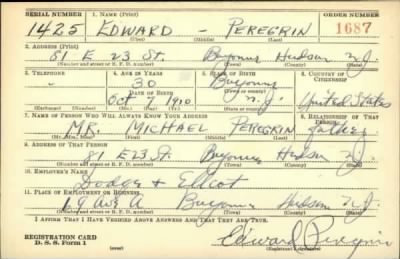 SERIAL NUMBER 1. NAME (Print) ORDER NUMBER
1425 EDWARD - PEREGRIN 1687
(First) (Middle) (Last)
2. ADDRESS (Print)
81 E 23 St. Bayonne Hudson N.J.
(Number and street or R. F. D. number) (Town) (County) (State)
3. TELEPHONE 4. AGE IN YEARS 5. PLACE OF BIRTH 6. COUNTRY OF CITIZENSHIP
30 Bayonne
DATE OF BIRTH (Town or county)
Oct 1910 N.J. United States
(Exchange) (Number) (Mo.) (Day) (Yr.) (State or country)
7. NAME OF PERSON WHO WILL ALWAYS KNOW YOUR ADDRESS 8. RELATIONSHIP OF THAT PERSON
MR. MICHAEL PEREGRIN father
(Mr., Mrs., Miss) (First) (Middle) (Last)
9. ADDRESS OF THAT PERSON
81 E 23 St. Bayonne Hudson N.J.
(Number and street or R. F. D. number) (Town) (County) (State)
10. EMPLOYER'S NAME
Dodge & Elliot
11. PLACE OF EMPLOYMENT OR BUSINESS
19 Ave A Bayonne Hudson N.J.
(Number and street or R. F. D. number) (Town) (County) (State)
I AFFIRM THAT I HAVE VERIFIED ABOVE ANSWERS AND THAT THEY ARE TRUE.
REGISTRATION CARD
D. S. S. Form 1 (over) Edward Peregrin
(Registrant's signature)